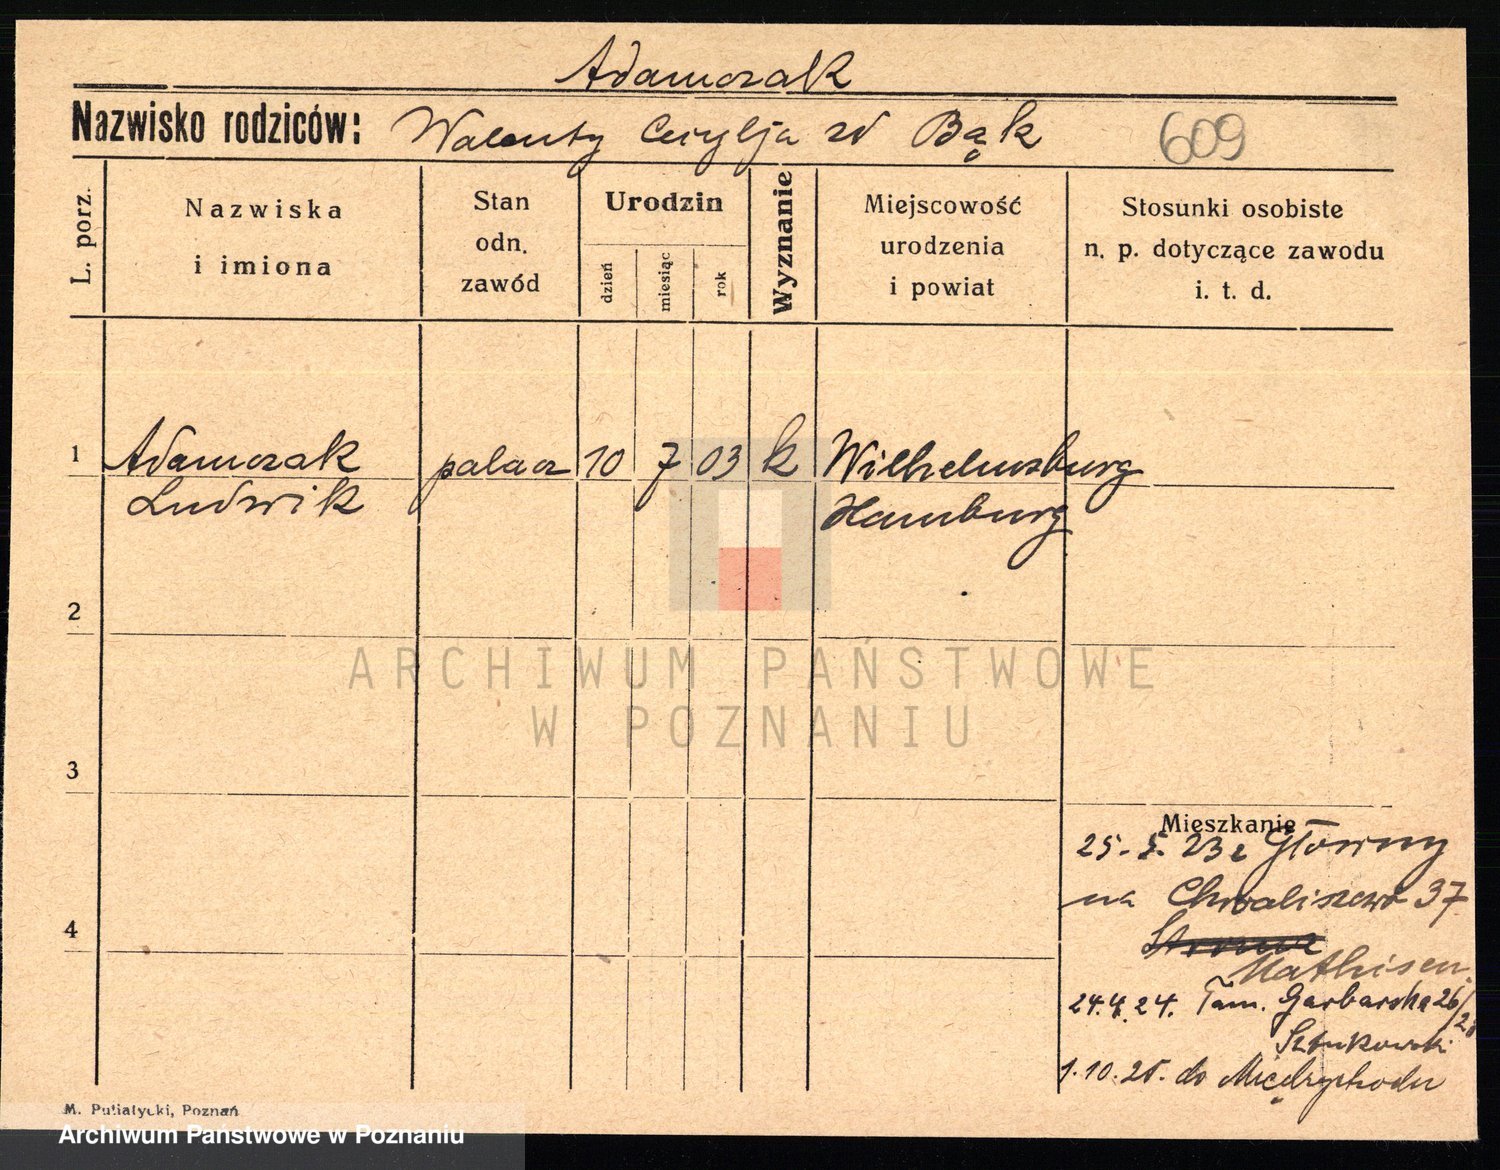 Adamczak
Nazwisko rodziców: Walenty Cecylja zd Bąk 609
L. porz.
Nazwiska
i imiona
Stan
odn.
zawód
Urodzin
dzień
miesiąc
rok
Wyznanie
Miejscowość
urodzenia
i powiat
Stosunki osobiste
n. p. dotyczące zawodu
i. t. d.
1 Adamczak palacz 10 7 03 k Wilhelmsburg
Ludwik Hamburg
2
3
4
Mieszkanie
25. 5. 23 z Główny
na Chwaliszewo 37
Mathisen
24.4.24. Tam. Garbarska 26/28
Sztukowski
1.10.25. do Międzychodu
ARCHIWUM PAŃSTWOWE
W POZNANIU
M. Putiatycki, Poznań
Archiwum Państwowe w Poznaniu